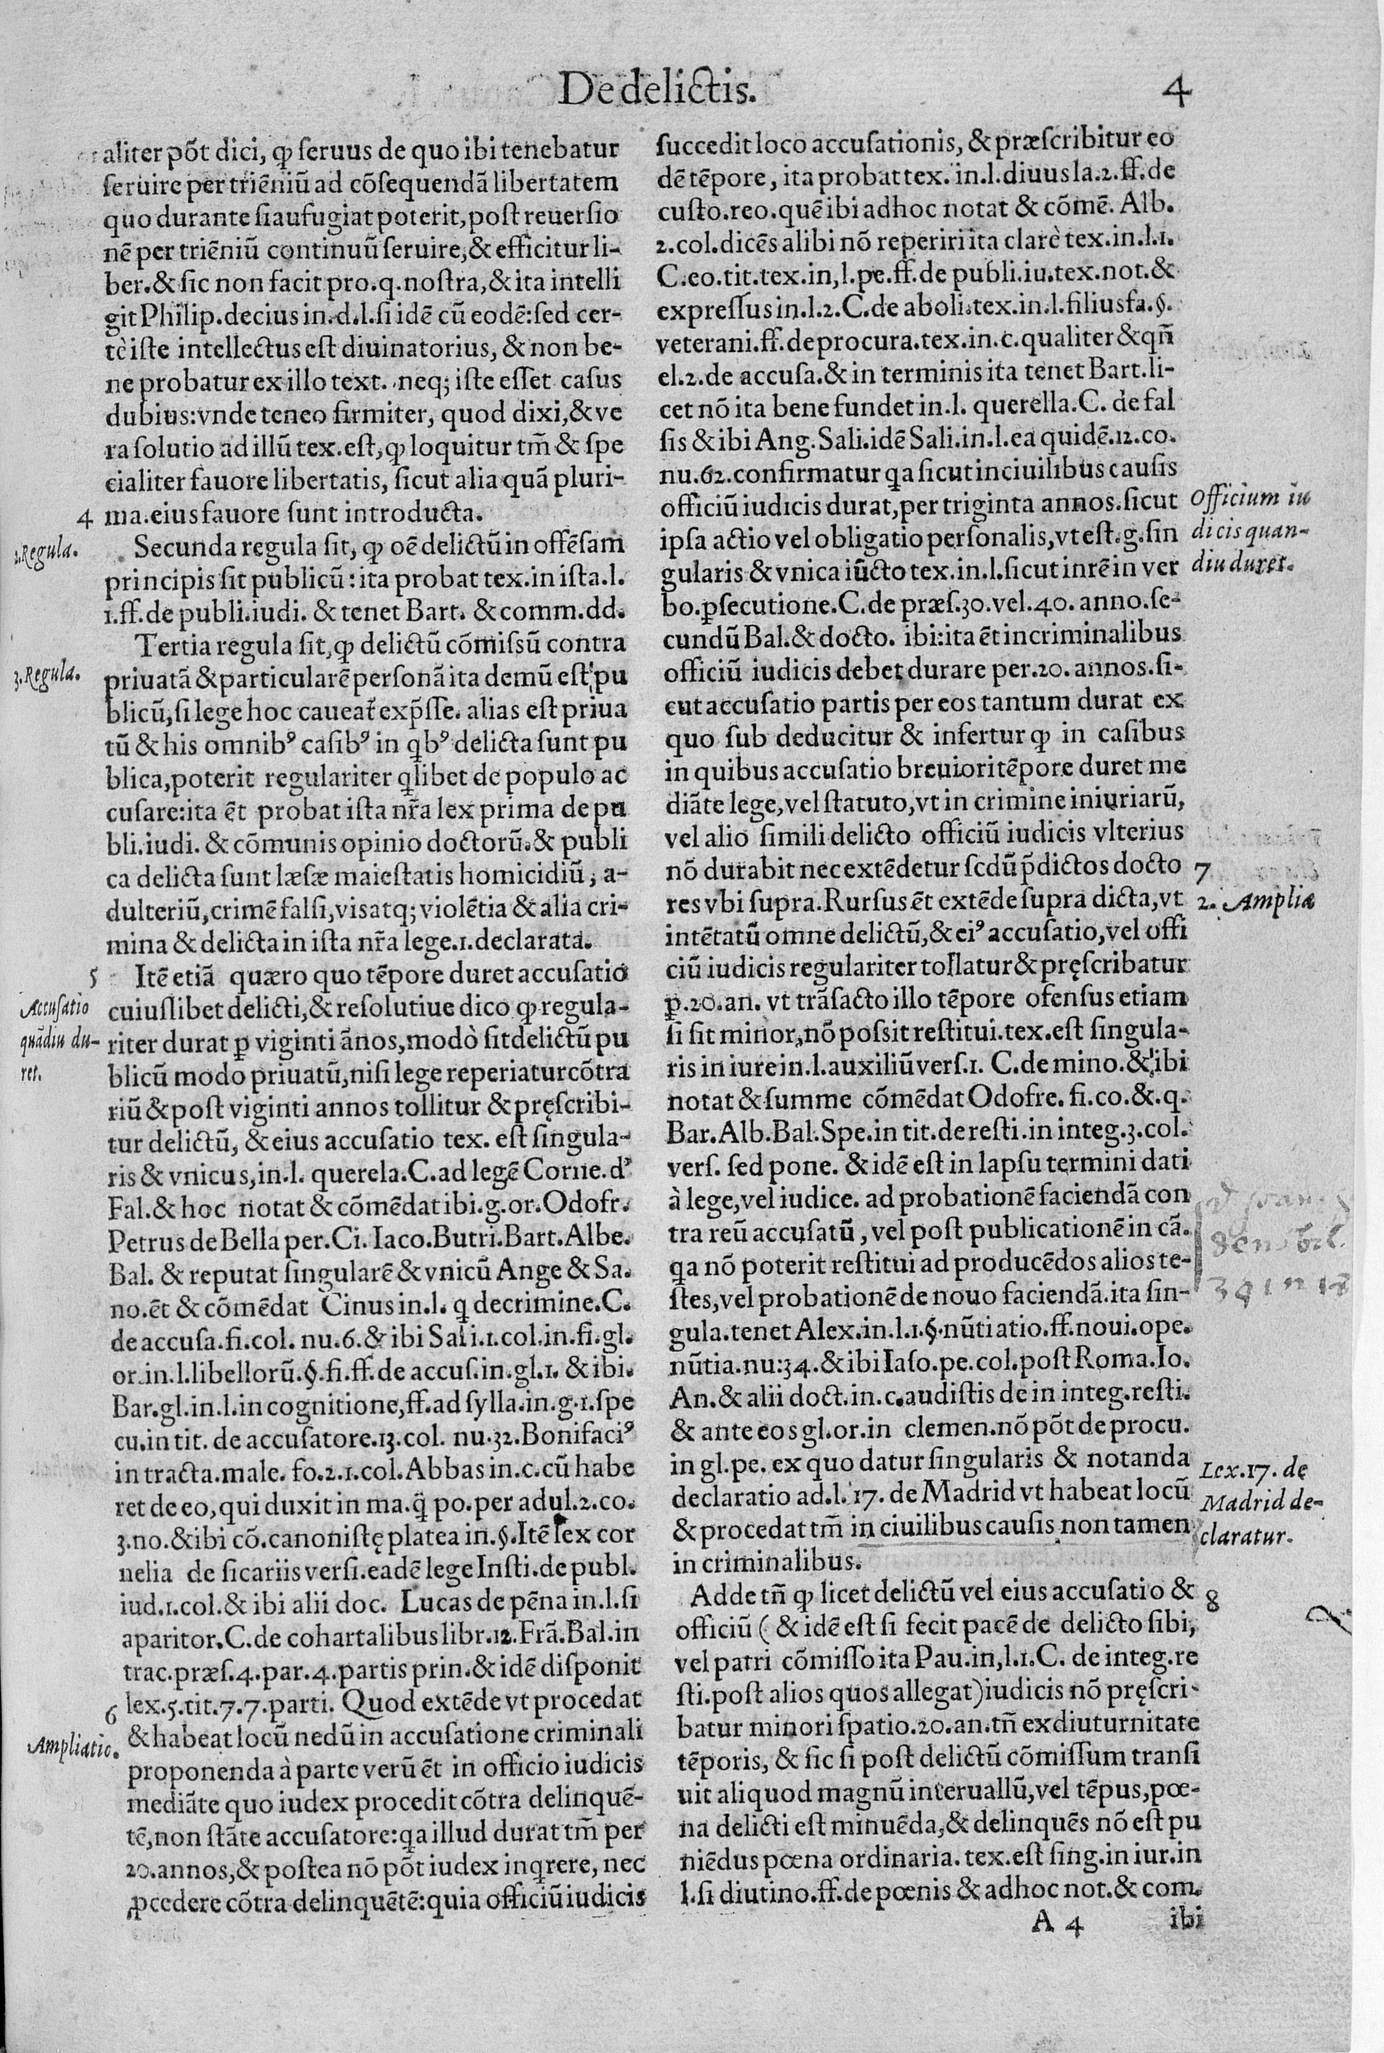 De delictis.
4
aliter põt dici, ꝙ seruus de quo ibi tenebatur
seruire per triẽniũ ad cõsequendã libertatem
quo durante si aufugiat poterit, post reuersio
nẽ per triẽniũ continuũ seruire, & efficitur li-
ber. & sic non facit pro. q. nostra, & ita intelli
git Philip. decius in. d. l. si idẽ cũ eodẽ: sed cer-
tè iste intellectus est diuinatorius, & non be-
ne probatur ex illo text. neq; iste esset casus
dubius: vnde teneo firmiter, quod dixi, & ve
ra solutio ad illũ tex. est, ꝙ loquitur tm̃ & spe
cialiter fauore libertatis, sicut alia quã pluri-
4 ma. eius fauore sunt introducta.
2. Regula.
Secunda regula sit, ꝙ oẽ delictũ in offẽsam
principis sit publicũ: ita probat tex. in ista. l.
1. ff. de publi. iudi. & tenet Bart. & comm. dd.
Tertia regula sit, ꝙ delictũ cõmissũ contra
3. Regula.
priuatã & particularẽ personã ita demũ est pu
blicũ, si lege hoc caueat̃ exp̃sse. alias est priua
tũ & his omnibꝰ casibꝰ in qbꝰ delicta sunt pu
blica, poterit regulariter qlibet de populo ac
cusare: ita ẽt probat ista nr̃a lex prima de pu
bli. iudi. & cõmunis opinio doctorũ. & publi
ca delicta sunt læsæ maiestatis homicidiũ, a-
dulteriũ, crimẽ falsi, visatq; violẽtia & alia cri-
mina & delicta in ista nr̃a lege. 1. declarata.
5 Itẽ etiã quæro quo tẽpore duret accusatio
Accusatio
quãdiu du-
ret.
cuiuslibet delicti, & resolutiue dico ꝙ regula-
riter durat ꝑ viginti ãnos, modò sit delictũ pu
blicũ modo priuatũ, nisi lege reperiatur cõtra
riũ & post viginti annos tollitur & pręscribi-
tur delictũ, & eius accusatio tex. est singula-
ris & vnicus, in. l. querela. C. ad legẽ Corne. d'
Fal. & hoc notat & cõmẽdat ibi. g. or. Odofr.
Petrus de Bella per. Ci. Iaco. Butri. Bart. Albe.
Bal. & reputat singularẽ & vnicũ Ange & Sa.
no. ẽt & cõmẽdat Cinus in. l. q de crimine. C.
de accusa. fi. col. nu. 6. & ibi Sali. 1. col. in. fi. gl.
or. in. l. libellorũ. §. fi. ff. de accus. in. gl. 1. & ibi.
Bar. gl. in. l. in cognitione, ff. ad sylla. in. g. 1. spe
cu. in tit. de accusatore. 13. col. nu. 32. Bonifaciꝰ
in tracta. male. fo. 2. 1. col. Abbas in. c. cũ habe
ret de eo, qui duxit in ma. q̃ po. per adul. 2. co.
3. no. & ibi cõ. canonistę platea in. §. Itẽ lex cor
nelia de sicariis versi. eadẽ lege Insti. de publ.
iud. 1. col. & ibi alii doc. Lucas de pẽna in. l. si
aparitor. C. de cohartalibus libr. 12. Frã. Bal. in
trac. præs. 4. par. 4. partis prin. & idẽ disponit
6 lex. 5. tit. 7. 7. parti. Quod extẽde vt procedat
Ampliatio.
& habeat locũ nedũ in accusatione criminali
proponenda à parte verũ ẽt in officio iudicis
mediãte quo iudex procedit cõtra delinquẽ-
tẽ, non stãte accusatore: qa illud durat tm̃ per
20. annos, & postea nõ põt iudex inqrere, nec
ꝓcedere cõtra delinquẽtẽ: quia officiũ iudicis
succedit loco accusationis, & præscribitur eo
dẽ tẽpore, ita probat tex. in. l. diuus la. 2. ff. de
custo. reo. quẽ ibi ad hoc notat & cõmẽ. Alb.
2. col. dicẽs alibi nõ reperiri ita clarè tex. in. l. 1.
C. eo. tit. tex. in, l. pe. ff. de publi. iu. tex. not. &
expressus in. l. 2. C. de aboli. tex. in. l. filiusfa. §.
veterani. ff. de procura. tex. in. c. qualiter & qñ
el. 2. de accusa. & in terminis ita tenet Bart. li-
cet nõ ita bene fundet in. l. querella. C. de fal
sis & ibi Ang. Sali. idẽ Sali. in. l. ea quidẽ. 12. co.
nu. 62. confirmatur qa sicut in ciuilibus causis
officiũ iudicis durat, per triginta annos. sicut
Officium iu
dicis quan-
diu duret.
ipsa actio vel obligatio personalis, vt est. g. sin
gularis & vnica iũcto tex. in. l. sicut in rẽ in ver
bo. ꝑsecutione. C. de præs. 30. vel. 40. anno. se-
cundũ Bal. & docto. ibi: ita ẽt in criminalibus
officiũ iudicis debet durare per. 20. annos. si-
cut accusatio partis per eos tantum durat ex
quo sub deducitur & infertur ꝙ in casibus
in quibus accusatio breuiori tẽpore duret me
diãte lege, vel statuto, vt in crimine iniuriarũ,
vel alio simili delicto officiũ iudicis vlterius
nõ durabit nec extẽdetur scdũ p̃dictos docto 7
res vbi supra. Rursus ẽt extẽde supra dicta, vt
2. Ampliæ
intẽtatũ omne delictũ, & eiꝰ accusatio, vel offi
ciũ iudicis regulariter tollatur & pręscribatur
ꝑ. 20. an. vt trãsacto illo tẽpore ofensus etiam
si sit minor, nõ possit restitui. tex. est singula-
ris in iure in. l. auxiliũ vers. 1. C. de mino. & ibi
notat & summe cõmẽdat Odofre. fi. co. &. q.
Bar. Alb. Bal. Spe. in tit. de resti. in integ. 3. col.
vers. sed pone. & idẽ est in lapsu termini dati
à lege, vel iudice. ad probationẽ faciendã con
tra reũ accusatũ, vel post publicationẽ in cã.
qa nõ poterit restitui ad producẽdos alios te-
stes, vel probationẽ de nouo faciendã. ita sin-
gula. tenet Alex. in. l. 1. §. nũtiatio. ff. noui. ope.
nũtia. nu: 34. & ibi Iaso. pe. col. post Roma. Io.
An. & alii doct. in. c. audistis de in integ. resti.
& ante eos gl. or. in clemen. nõ põt de procu.
in gl. pe. ex quo datur singularis & notanda
Lex. 17. de
Madrid de-
claratur.
declaratio ad. l. 17. de Madrid vt habeat locũ
& procedat tm̃ in ciuilibus causis non tamen
in criminalibus.
Adde tñ ꝙ licet delictũ vel eius accusatio & 8
officiũ ( & idẽ est si fecit pacẽ de delicto sibi,
vel patri cõmisso ita Pau. in, l. 1. C. de integ. re
sti. post alios quos allegat) iudicis nõ pręscri-
batur minori spatio. 20. an. tñ ex diuturnitate
tẽporis, & sic si post delictũ cõmissum transi
uit aliquod magnũ interuallũ, vel tẽpus, pœ-
na delicti est minuẽda, & delinquẽs nõ est pu
niẽdus pœna ordinaria. tex. est sing. in iur. in
l. si diutino. ff. de pœnis & ad hoc not. & com.
A 4
ibi